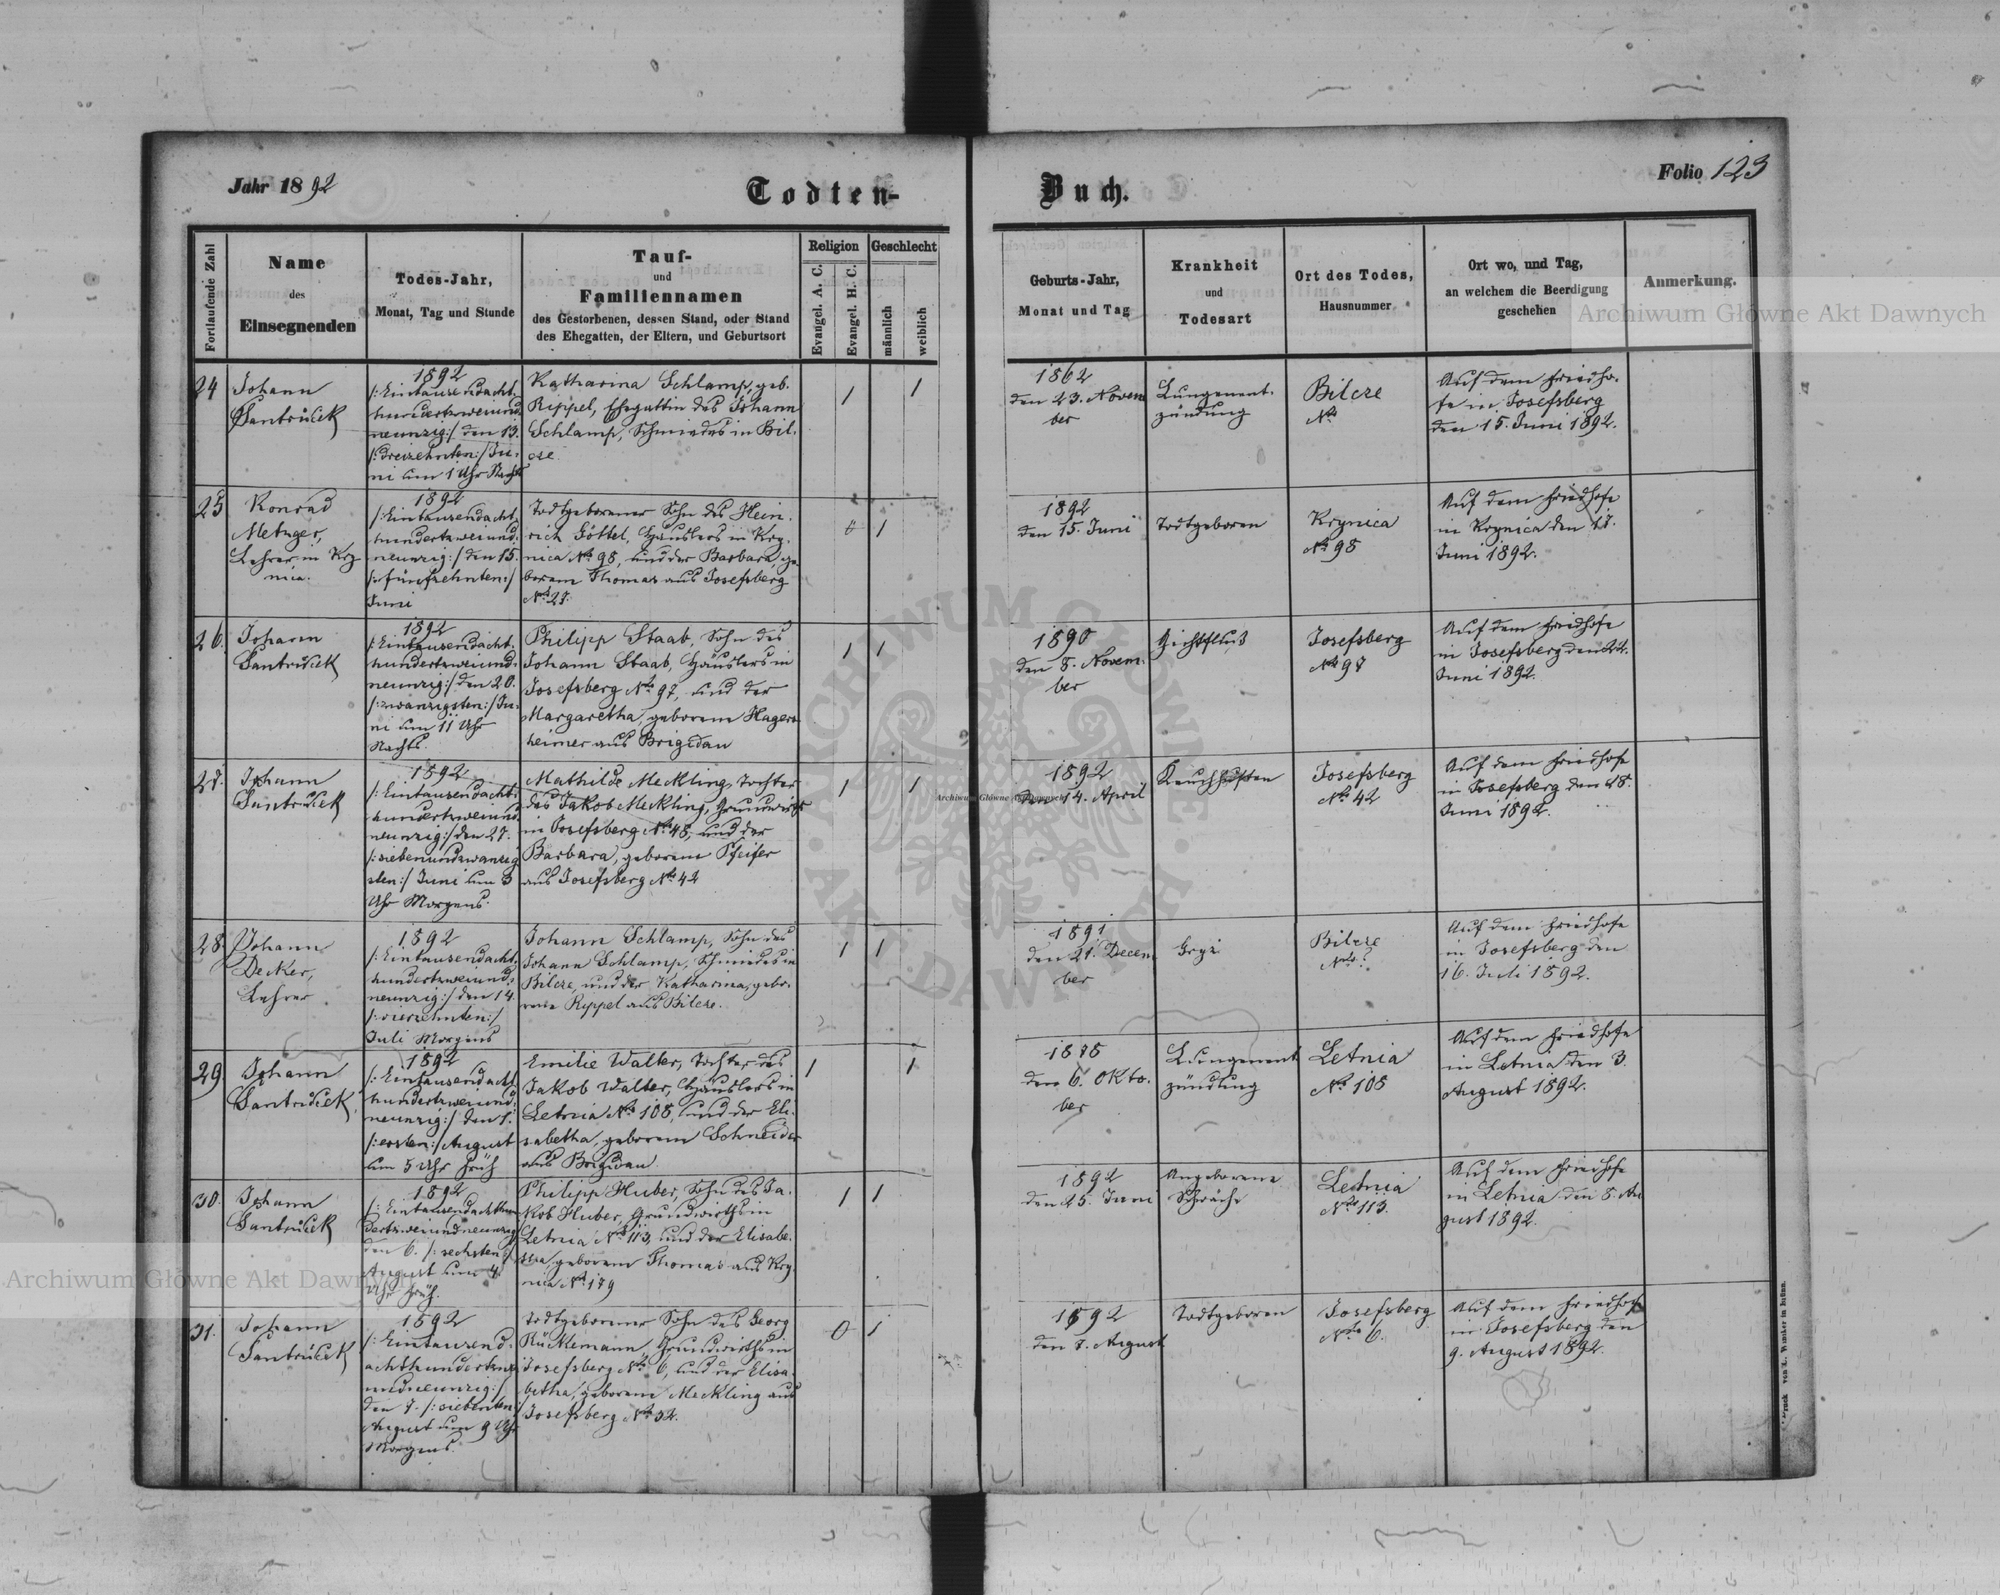 Jahr 1892
Todten-
Buch.
Folio 123
Fortlaufende Zahl
Name
des
Einsegnenden
Todes-Jahr,
Monat, Tag und Stunde
Tauf-
und
Familiennamen
des Gestorbenen, dessen Stand, oder Stand
des Ehegatten, der Eltern, und Geburtsort
Religion
Evangel. A. C.
Evangel. H. C.
Geschlecht
männlich
weiblich
Geburts-Jahr,
Monat und Tag
Krankheit
und
Todesart
Ort des Todes,
Hausnummer
Ort wo, und Tag,
an welchem die Beerdigung
geschehen
Anmerkung.
24
Johann
Santrůček
1892
/:Eintausendacht-
hundertzweiund-
neunzig:/ den 13.
/:dreizehnten:/ Ju-
ni um 1 Uhr Nachts
Katharina Schlamp, geb.
Rippel, Ehegattin des Johann
Schlamp, Schmiedes in Bil-
cze
1
1
1862
den 23. Novem
ber
Lungenent-
zündung
Bilcze
No
Auf dem Friedho-
fe in Josefsberg
den 15. Juni 1892.
25
Konrad
Metzger,
Lehrer in Kry
nica.
1892
/:Eintausendacht-
hundertzweiund-
neunzig:/ den 15.
/:fünfzehnten:/
Juni
Todtgeborener Sohn des Hein-
rich Göttel, Häuslers in Kry-
nica No 98, und der Barbara, ge-
borenen Thomas aus Josefsberg
No 27.
0
1
1892
den 15. Juni
Todtgeboren
Krynica
No 98
Auf dem Friedhofe
in Krynica den 17.
Juni 1892.
26.
Johann
Santrůček
1892
/:Eintausendacht-
hundertzweiund-
neunzig:/ den 20.
/:zwanzigsten:/ Ju-
ni um 11 Uhr
Nachts.
Philipp Staab, Sohn des
Johann Staab, Häuslers in
Josefsberg No 97, und der
Margaretha, geborenen Hagers
heimer aus Brigidau
1
1
1890
den 8. Novem-
ber
Josefsberg
No 97
Auf dem Friedhofe
in Josefsberg den 22.
Juni 1892.
27.
Johann
Santrůček
1892
/:Eintausendacht-
hundertzweiund-
neunzig:/ den 27.
/:siebenundzwanzig
sten:/ Juni um 3
Uhr Morgens.
Mathilde Meckling, Tochter
des Jakob Meckling, Grundwirths
in Josefsberg No 48, und der
Barbara, geborenen Pfeifer
aus Josefsberg No 42
1
1
1892
den 14. April
Keuchhusten
Josefsberg
No 42
Auf dem Friedhofe
in Josefsberg den 28.
Juni 1892.
28.
Johann
Decker,
Lehrer
1892
/:Eintausendacht-
hundertzweiund-
neunzig:/ den 14.
/:vierzehnten:/
Juli Morgens
Johann Schlamp, Sohn des
Johann Schlamp, Schmiedes in
Bilcze, und der Katharina, gebo-
renen Rippel aus Bilcze.
1
1
1891
den 21. Decem
ber
Bilcze
No ?
Auf dem Friedhofe
in Josefsberg den
16. Juli 1892.
29
Johann
Santrůček
1892
/:Eintausendacht
hundertzweiund-
neunzig:/ den 1.
/:ersten:/ August
um 5 Uhr Früh
Emilie Walter, Tochter des
Jakob Walter, Häuslers in
Letnia No 108, und der Eli-
sabetha, geborenen Schneider
aus Brigidau.
1
1
1878
den 6. Okto-
ber
Lungenent
zündung
Letnia
No 108
Auf dem Friedhofe
in Letnia den 3.
August 1892.
30.
Johann
Santrůček
1892
/:Eintausendachthun
dertzweiundneunzig
den 6. /:sechsten:/
August um 4
Uhr Früh.
Philipp Huber, Sohn des Ja-
kob Huber, Grundwirths in
Letnia No 113, und der Elisabe-
tha, geborenen Thomas aus Kry
nica No 179
1
1
1892
den 25. Juni
Angeborene
Schwäche
Letnia
No 113.
Auf dem Friedhofe
in Letnia den 8. Au
gust 1892.
31.
Johann
Santrůček
1892
/:Eintausend-
achthundertzwei
undneunzig:/
den 7. /:siebenten:/
August um 9 Uhr
Morgens.
Todtgeborener Sohn des Georg
Rücklemann, Grundwirths in
Josefsberg No 6, und der Elisa-
betha, geborenen Meckling aus
Josefsberg No 32.
0
1
1892
den 7. August
Todtgeboren
Josefsberg
No 6.
Auf dem Friedhofe
in Josefsberg den
9. August 1892.
Archiwum Główne Akt Dawnych
Archiwum Główne Akt Dawnych
Archiwum Główne Akt Dawnych
ARCHIWUM GŁÓWNE · AKT DAWNYCH ·